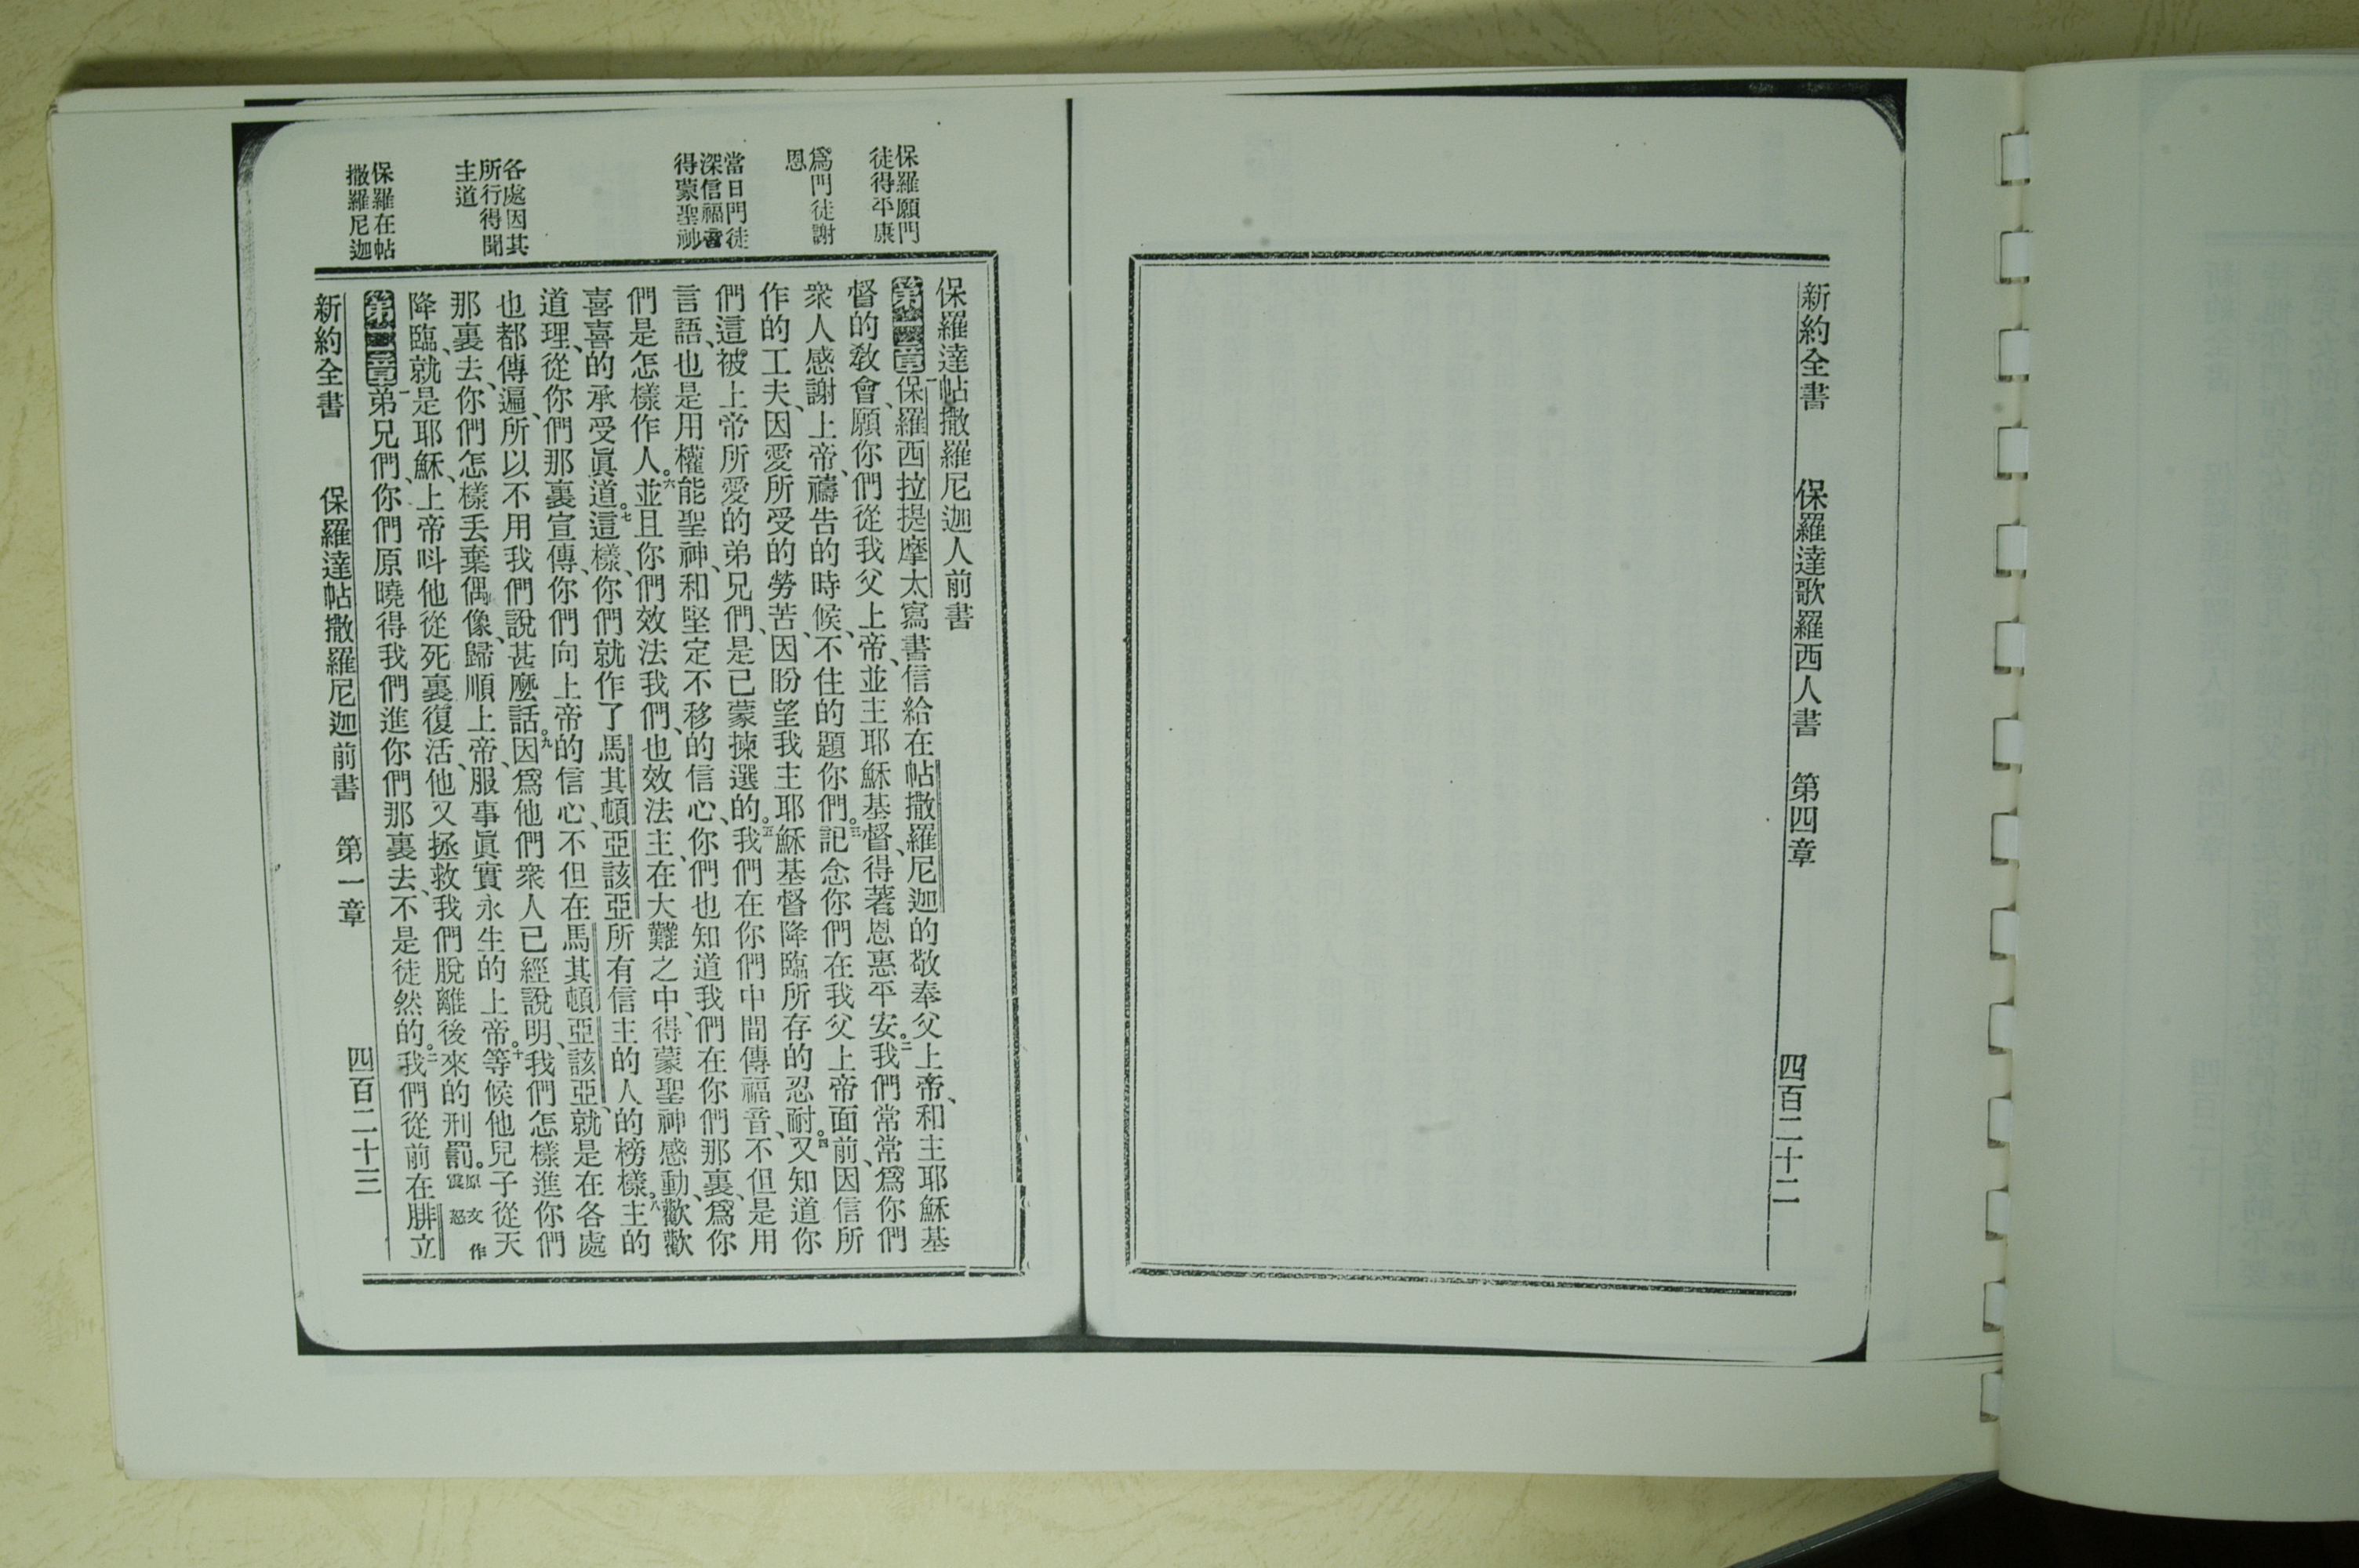 新約全書　保羅達歌羅西人書　第四章　四百二十二
保羅願門
徒得平康
爲門徒謝
恩
當日門徒
深信福音
得蒙聖神
各處因其
所行得聞
主道
保羅在帖
撒羅尼迦
保羅達帖撒羅尼迦人前書
第一章一保羅西拉提摩太寫書信給在帖撒羅尼迦的敬奉父上帝、和主耶穌基
督的教會、願你們從我父上帝、並主耶穌基督、得著恩惠平安。二我們常常爲你們
衆人感謝上帝、禱告的時候、不住的題你們。三記念你們在我父上帝面前、因信所
作的工夫、因愛所受的勞苦、因盼望我主耶穌基督降臨所存的忍耐。四又知道你
們這被上帝所愛的弟兄們、是已蒙揀選的。五我們在你們中間傳福音、不但是用
言語、也是用權能聖神、和堅定不移的信心、你們也知道我們在你們那裏、爲你
們是怎樣作人。六並且你們效法我們、也效法主、在大難之中、得蒙聖神感動、歡歡
喜喜的承受眞道。七這樣、你們就作了馬其頓亞該亞所有信主的人的榜樣。八主的
道理、從你們那裏宣傳、你們向上帝的信心、不但在馬其頓亞該亞、就是在各處
也都傳遍、所以不用我們說甚麽話。九因爲他們衆人已經說明、我們怎樣進你們
那裏去、你們怎樣丟棄偶像、歸順上帝、服事眞實永生的上帝。十等候他兒子從天
降臨、就是耶穌、上帝呌他從死裏復活、他又拯救我們脫離後來的刑罰。原文作震怒
第二章一弟兄們、你們原曉得我們進你們那裏去、不是徒然的。二我們從前在腓立
新約全書　保羅達帖撒羅尼迦前書　第一章　四百二十三